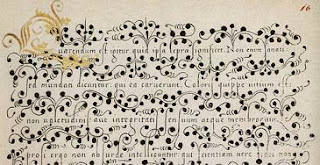 16
Quaerendum est igitur quid ipsa lepra significet. Non enim sanati
sed mundati dicuntur, qui ea caruerunt. Coloris quippe vitium est
non valetudinis, aut integritatis sensuum atque membrorum.
ergo non absurde intelliguntur, qui scientiam verae